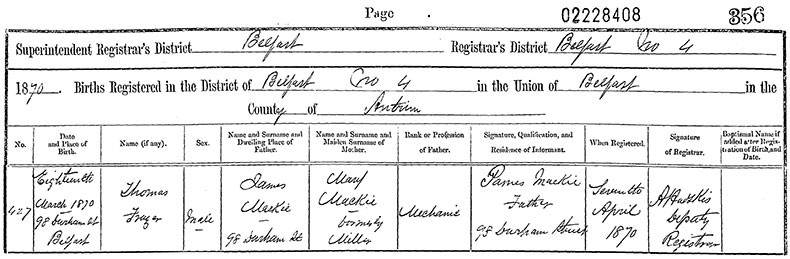 Page 02228408 356
Superintendent Registrar's District Belfast Registrar's District Belfast No 4
1870. Births Registered in the District of Belfast No 4 in the Union of Belfast in the
County of Antrim
No. Date and Place of Birth. Name (if any). Sex. Name and Surname and Dwelling Place of Father. Name and Surname and Maiden Surname of Mother. Rank or Profession of Father. Signature, Qualification, and Residence of Informant. When Registered. Signature of Registrar. Baptismal Name if added after Registration of Birth, and Date.
427
Eighteenth
March 1870
98 Durham St
Belfast
Thomas
Frazer
Male
James
Mackie
98 Durham St
Mary
Mackie
formerly
Miller
Mechanic
James Mackie
Father
98 Durham Street
Seventh
April
1870
Deputy
Registrar